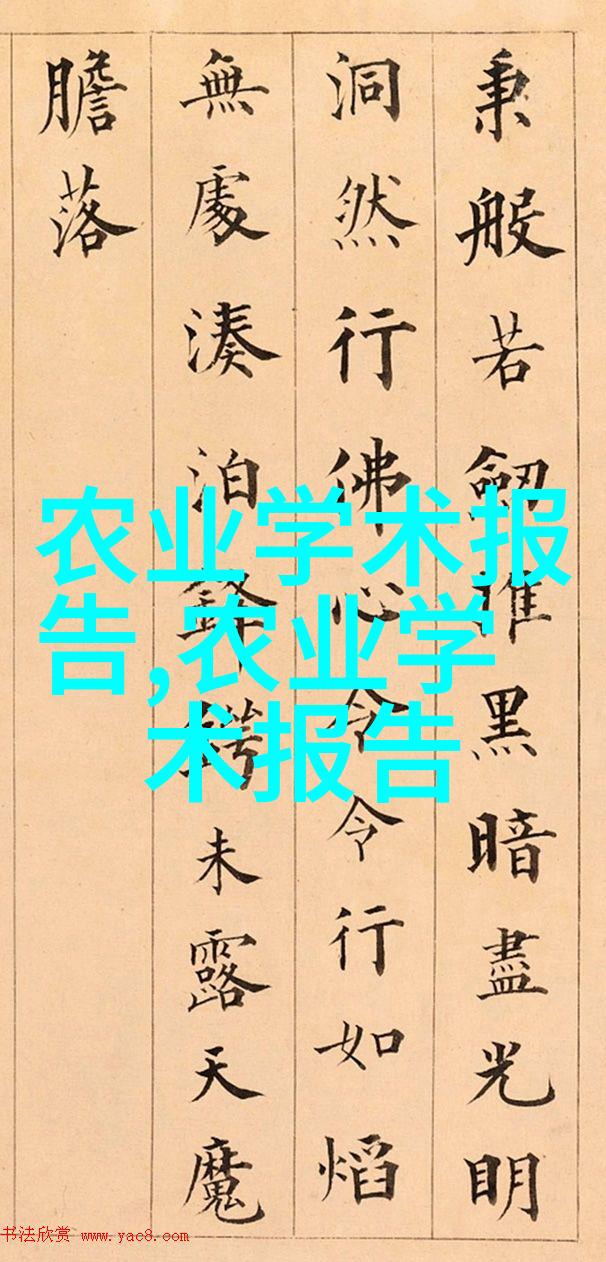 秉般若劔摧黑暗盡光明
洞然行佛心令令行如熖
無處湊泊鋒鍔未露天魔
膽落
农业学术报
告,农业学
术报告
书法欣赏 www.yac8.com